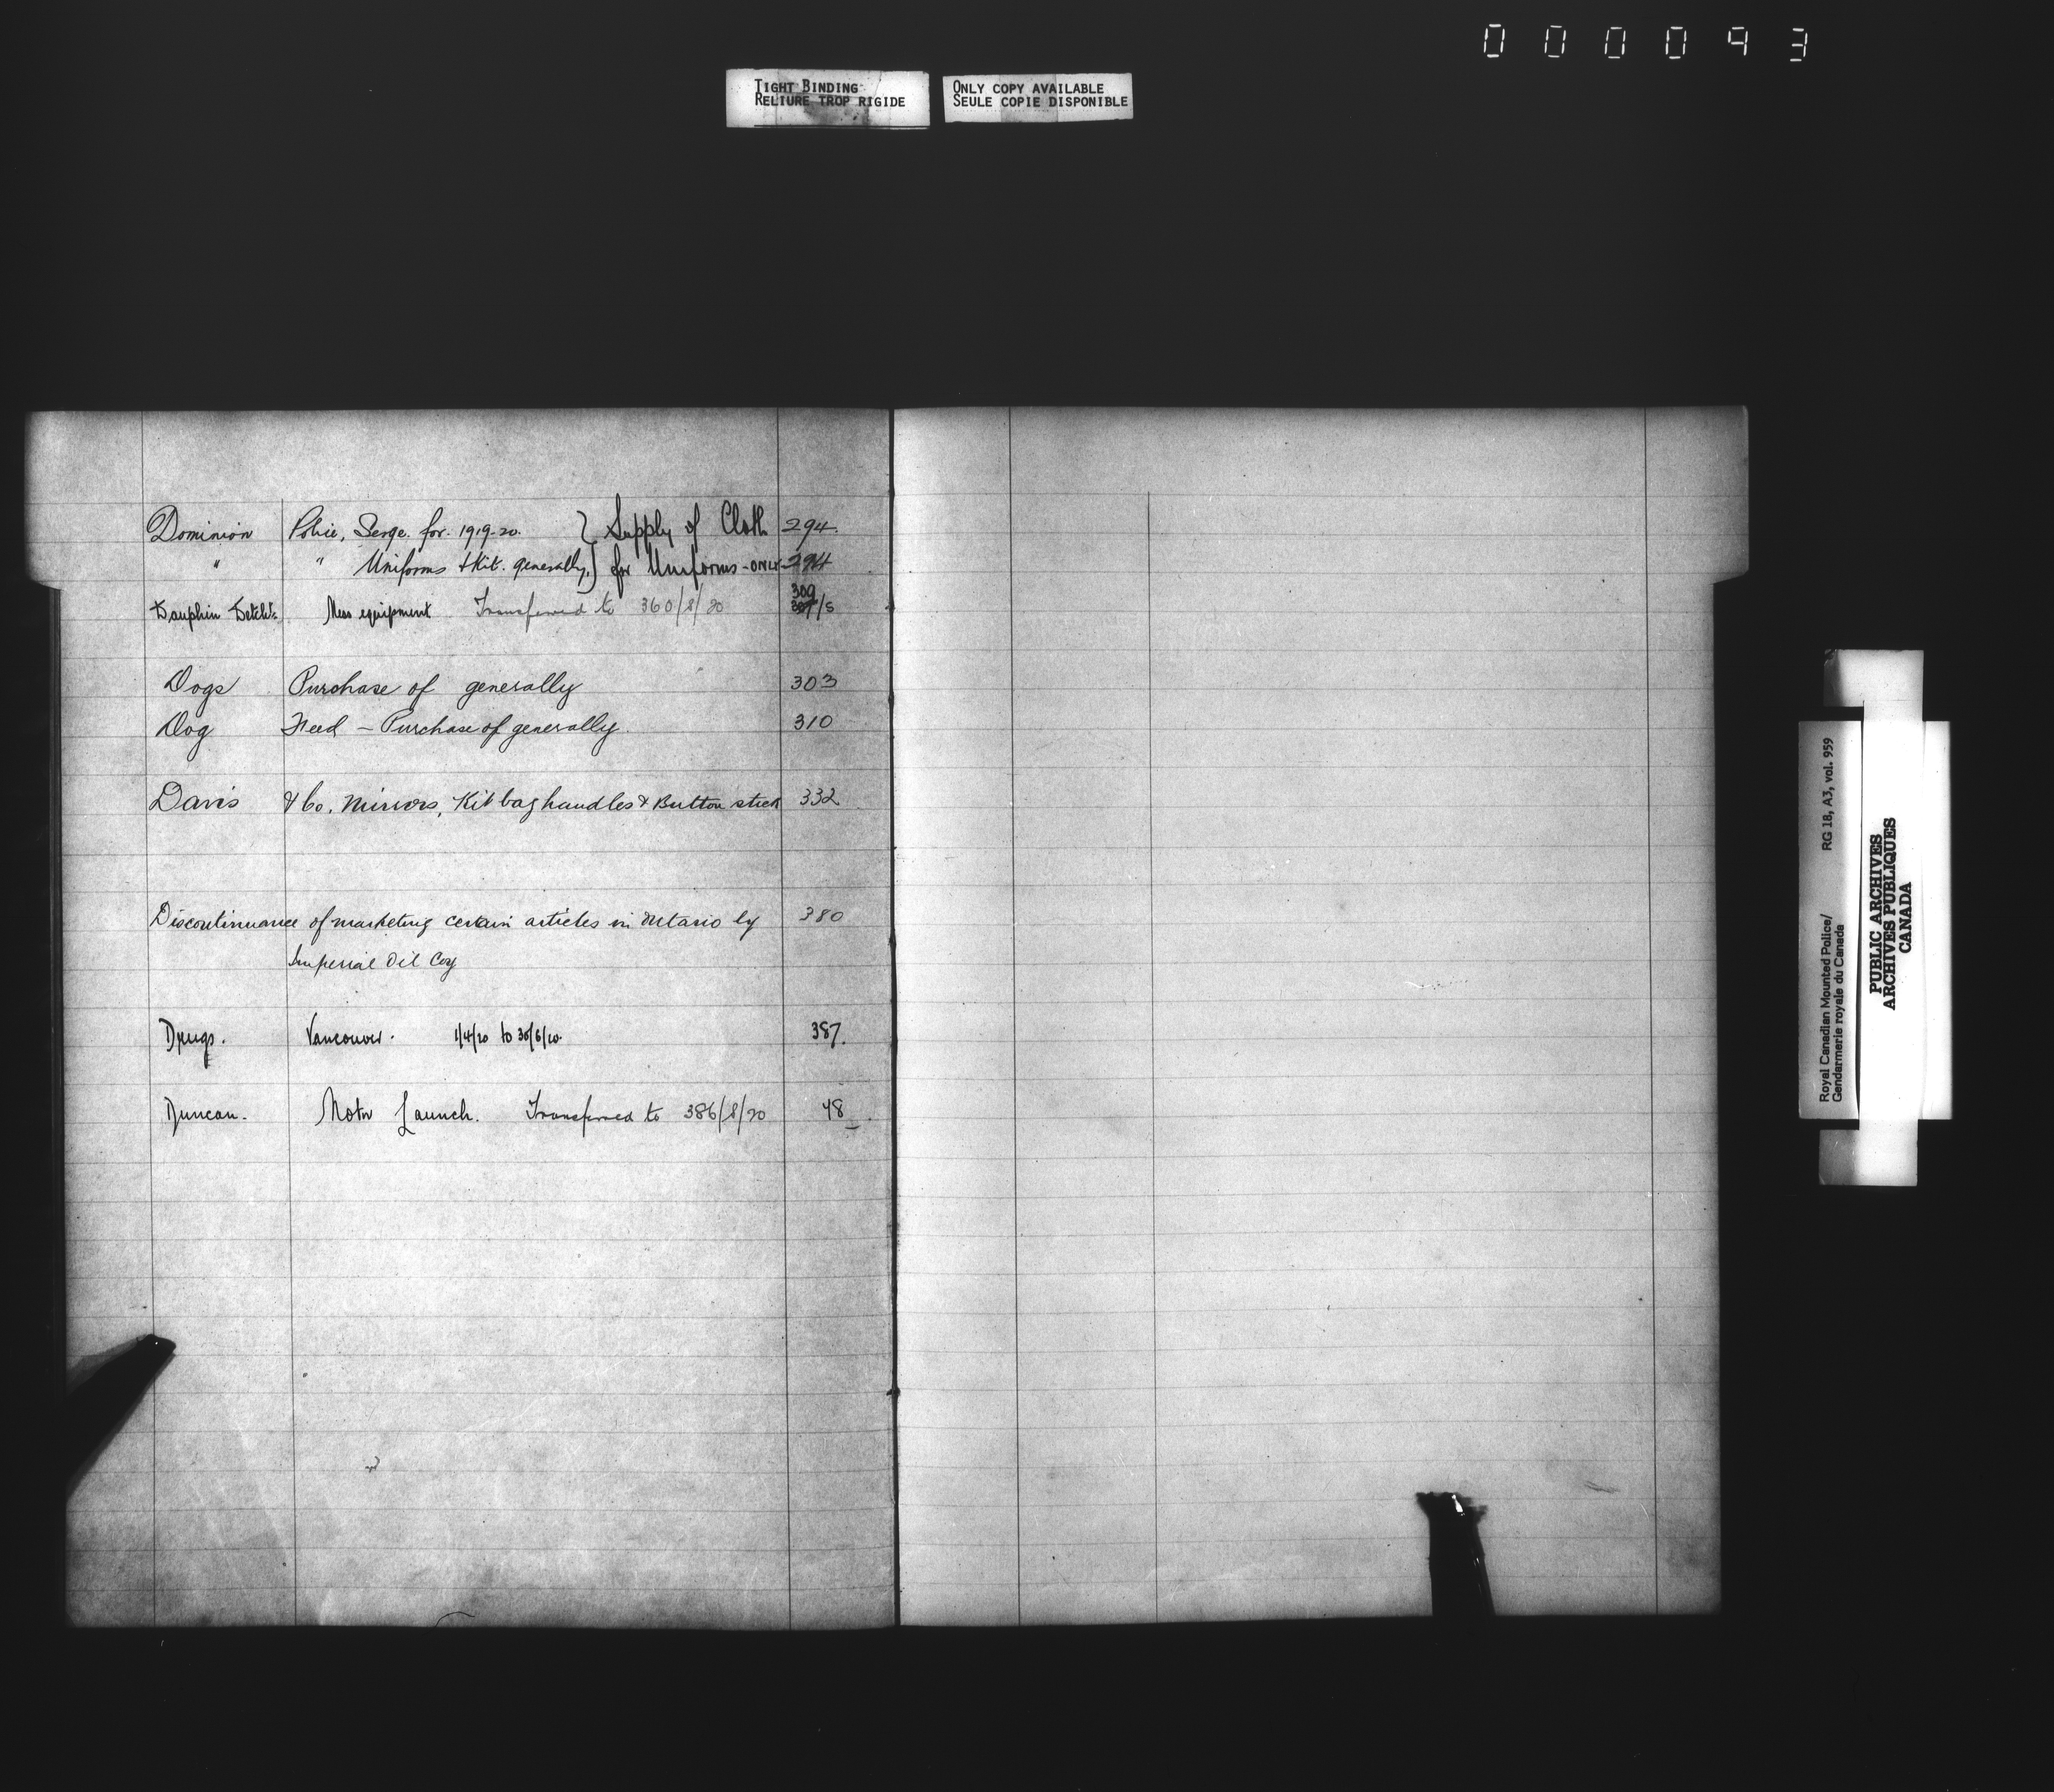 000093
TIGHT BINDING
RELIURE TROP RIGIDE
ONLY COPY AVAILABLE
SEULE COPIE DISPONIBLE
Dominion Police, Serge. for. 1919-20. } Supply of Cloth 294.
" " Uniforms & Kit. generally, } for Uniforms - ONLY 294
309
Dauphin Mess equipment Transferred to 360/8/20 /5
Dogs Purchase of generally 303
Dog Feed - Purchase of generally. 310
Davis & Co. Mirrors, Kit bag handles & Button stick 332
Discontinuance of marketing certain articles in Ontario by 380
Imperial Oil Coy
Drugs. Vancouver. 1/4/20 to 30/6/20. 387.
Duncan. Motor Launch. Transferred to 386/8/20 48
Royal Canadian Mounted Police/ RG 18, A3, vol. 959
Gendarmerie royale du Canada
PUBLIC ARCHIVES
ARCHIVES PUBLIQUES
CANADA